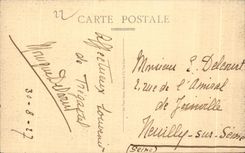 22
CARTE POSTALE
Affectueux souvenir
de Tregastel
30-8-27
Monsieur E. Delcourt
2, rue de l'Amiral
de Joinville
Neuilly-sur-Seine
(Seine)